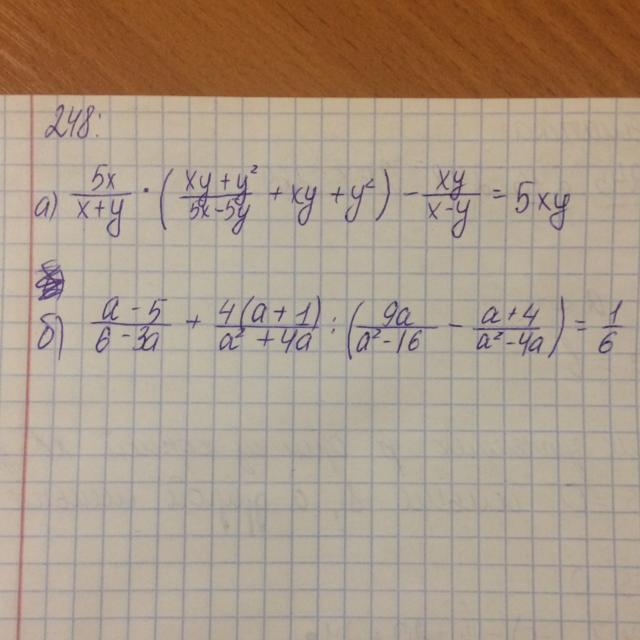 248:
а) 5x/(x+y) · ((xy+y²)/(5x-5y) + xy + y²) - xy/(x-y) = 5xy
б) (a-5)/(6-3a) + 4(a+1)/(a²+4a) : (9a/(a²-16) - (a+4)/(a²-4a)) = 1/6